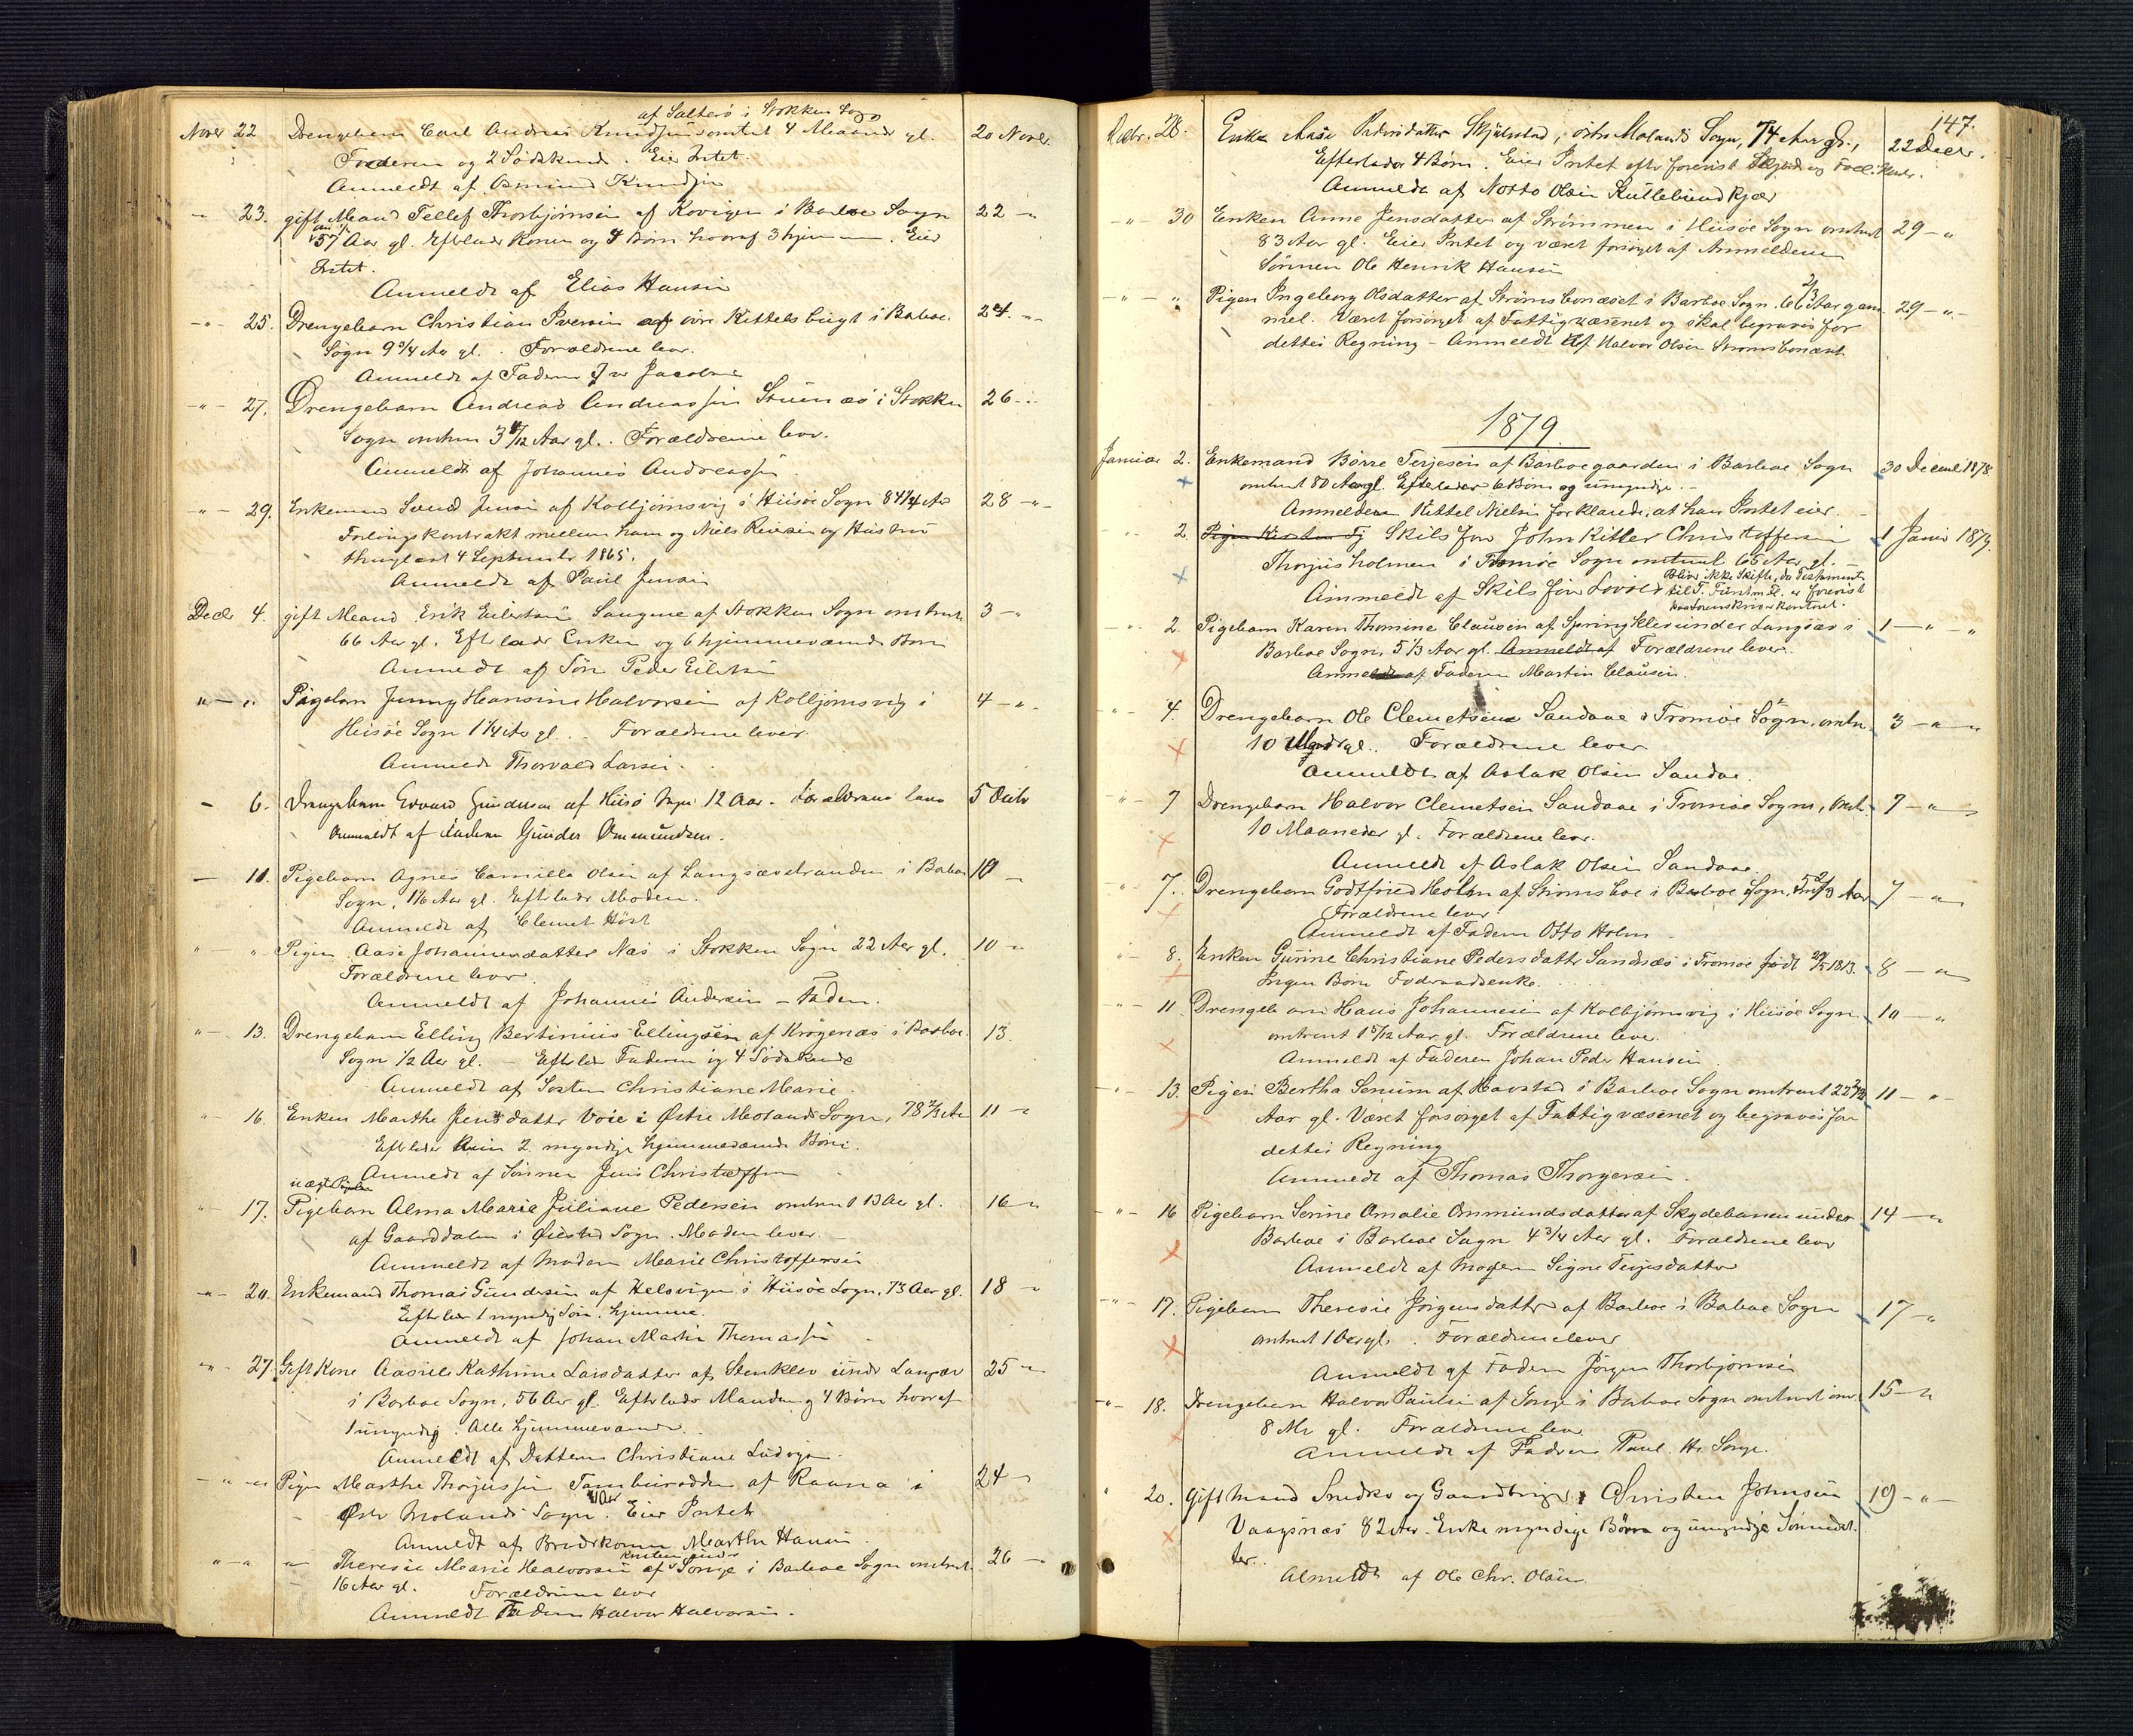 af Salterö i Stokken Sogn
Novbr 22 Drengebarn Carl Andreas Knudsen omtrent 4 Maaneder gl. 20 Novbr.
Faderen og 2 Södskende. Eier Intet.
Anmeldt af Osmund Knudsen
" 23. gift Mand Tellef Thorbjörnsen af Kovigen i Barboe Sogn 22 "
57 Aar gl. Efterlader Konen og 4 Börn hvoraf 3 hjemme. Eier
Intet.
Anmeldt af Elias Hansen
" 25. Drengebarn Christian Iversen af övre Kittelsbugt i Barboe 24. "
Sogn 9 3/4 Aar gl. Forældrene lever.
Anmeldt af Faderen Iver Jacobsen
" 27. Drengebarn Andreas Andreassen Stuenæs i Stokken 26 "
Sogn omtrent 3 /12 Aar gl. Forældrene lever.
Anmeldt af Johannes Andreassen
" 29. Enkemand Svend Jensen af Kolbjörnsvig i Hisöe Sogn 84 1/4 Aar 28 "
Forlingskontrakt mellem ham og Niels Reiersen og Hustru
thinglæst 4 September 1865.
Anmeldt af Paul Jensen
Decbr 4. gift Mand Erik Eilertsen Sangene af Stokken Sogn omtrent 3 "
66 Aar gl. Efterlader Enken og 6 hjemmeværende Börn
Anmeldt af Sön Peder Eilertsen
" " Pigebarn Jenny Hansine Halvorsen af Kolbjörnsvig i 4 "
Hisöe Sogn 1 1/4 Aar gl. Forældrene lever
Anmeldt Thorvald Larsen.
- 6. Drengebarn Edvard Gundersen af Hisö Sogn 12 Aar. Forældrene leve 5 Decbr
Anmeldt af Faderen Gunder Ommundsen.
- 10. Pigebarn Agnes Camilla Olsen af Langsævstranden i Barboe 10 -
Sogn, 1 1/6 Aar gl. Efterlader Moderen.
Anmeldt af Clemet Höst
" " Pigen Aase Johannesdatter Næs i Stokken Sogn 22 Aar gl. 10 "
Forældrene lever
Anmeldt af Johannes Andersen - Faderen.
" 13. Drengebarn Elling Bertinius Ellingsen af Krögenæs i Barboe 13.
Sogn 1/2 Aar gl. - Efterlader Faderen og 4 Södskende
Anmeldt af Sosteren Christiane Marie
" 16. Enken Marthe Jensdatter Voie i Östre Molands Sogn, 78 2/3 Aar 11 "
Efterlader kun 2 myndige hjemmeværende Börn.
Anmeldt af Sönnen Jens Christoffersen
uægte Pigebarn
" 17. Pigebarn Alma Marie Juliane Pedersen omtrent 13 Aar gl. 16 "
af Gaarddalen i Öiestad Sogn. Moderen lever -
Anmeldt af Moderen Marie Christoffersen
" 20. Enkemand Thomas Gundersen af Helsvigen i Hisöe Sogn, 73 Aar gl. 18 "
Efterlader 1 myndig Sön hjemme.
Anmeldt af Johan Martin Thomassen
" 27. Gift Kone Aasille Kathrine Larsdatter af Stenklev under Langsæv 25 "
i Barboe Sogn, 56 Aar gl. Efterlader Manden og 4 Börn hvoraf
1 umyndig. Alle hjemmeværende.
Anmeldt af Datteren Christiane Ludvigsen
" " Pigen Marthe Thorjussen Tambursodden af Raana i 24 "
Östre Molands Sogn. Eier Intet.
Anmeldt af Broderkonen Marthe Hansen
" " " Theresie Marie Halvorsen af Songe i Barboe Sogn omtrent 26 "
16 Aar gl. Forældrene lever
Anmeldt Faderen Halvor Halvorsen.
147.
Decbr. 28. Enke Aase Pedersdatter Skjulestad, östre Molands Sogn, 74 Aar gl., 22 Decbr.
Efterlader 4 Börn. Eier Intet efter forevist
Anmeldt af Notto Olsen Kullebundkjær
" 30 Enken Anne Jensdatter af Strömmen i Hisöe Sogn omtrent 29 "
83 Aar gl. Eier Intet og været forsörget af Anmelderen
Sönnen Ole Henrik Hansen
" " Pigen Ingeborg Olsdatter af Strömsbonæset i Barboe Sogn. 66 2/3 Aar gam- 29 "
mel. Været forsörget af Fattigvæsenet og skal begraves for
dettes Regning - Anmeldt af Halvor Olsen Strömsbonæset.
1879.
Januar 2. Enkemand Börre Terjesen af Barboegaarden i Barboe Sogn 30 December 1878.
omtrent 80 Aar gl. Efterlader 6 Börn og umyndige. -
Anmelderen Kittel Nielsen forklarede, at han Intet eier.
" 2. Pigen Kirsten Tj Skilsför John Kitler Christoffersen 1 Januar 1879.
Thorjusholmen i Tromöe Sogn omtrent 65 Aar gl. -
Bliver ikke Skifte, da Testament
Anmeldt af Skilsför Lovold til T. er forevist
paa Sorenskriverkontoret.
" 2. Pigebarn Karen Thomine Clausen af Springkleiv under Langsæv i 1 " "
Barboe Sogn, 5 1/3 Aar gl. Anmeldt af Forældrene lever.
Anmeldt af Faderen Martin Clausen.
" 4. Drengebarn Ole Clemetsen Sandaae i Tromöe Sogn, omtr. 3 " "
10 Mdr gl. Forældrene lever
Anmeldt af Aslak Olsen Sandaae.
" 7 Drengebarn Halvor Clemetsen Sandaae i Tromöe Sogn, omtr. 7 " "
10 Maaneder gl. Forældrene lever.
Anmeldt af Aslak Olsen Sandaae
" 7. Drengebarn Godtfried Holm af Strömsboe i Barboe Sogn, 5 2/3 Aar 7 " "
Forældrene lever
Anmeldt af Faderen Otto Holm
" 8. Enken Gurine Christiane Pedersdatter Sandnæs i Tromöe född 29/5 1813. 8 "
Ingen Börn Foderaadsenke.
" 11. Drengebarn Hans Johannesen af Kolbjörnsvig i Hisöe Sogn 10 "
omtrent 1 5/12 Aar gl. Forældrene lever.
Anmeldt af Faderen Johan Peder Hansen
" 13. Pigen Bertha Serum af Havstad i Barboe Sogn omtrent 22 11 "
Aar gl. Været forsörget af Fattigvæsenet og begraves for
dettes Regning
Anmeldt af Thomas Thorgersen.
" 16 Pigebarn Serine Amalie Osmundsdatter af Skydebanen under 14 "
Barboe i Barboe Sogn 4 3/4 Aar gl. Forældrene lever
Anmeldt af Moderen Signe Terjesdatter
" 17. Pigebarn Theresie Jörgensdatter af Barboe i Barboe Sogn 17 "
omtrent 1 Aar gl. Forældrene lever
Anmeldt af Faderen Jörgen Thorbjörnsen
" 18. Drengebarn Halvor Paulsen af Songe i Barboe Sogn omtrent 15 "
8 Mr gl. Forældrene lever
Anmeldt af Faderen Paul Hr. Songe.
" 20. Gift Mand Snedker og Gaardbruger Christen Johnsen 19 "
Vaagsnæs 82 Aar. Enke myndige Börn og umyndige Sönnedat-
ter.
Almeldt af Ole Chr. Olsen